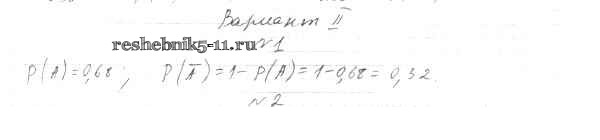 Вариант II
reshebnik5-11.ru
№1
P(A)=0,68; P(Ā)=1-P(A)=1-0,68=0,32.
№2